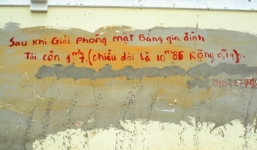 Sau khi Giải phóng mặt Bằng gia đình
Tôi còn 1m7. (chiều dài là 10m86 Rộng 0,1